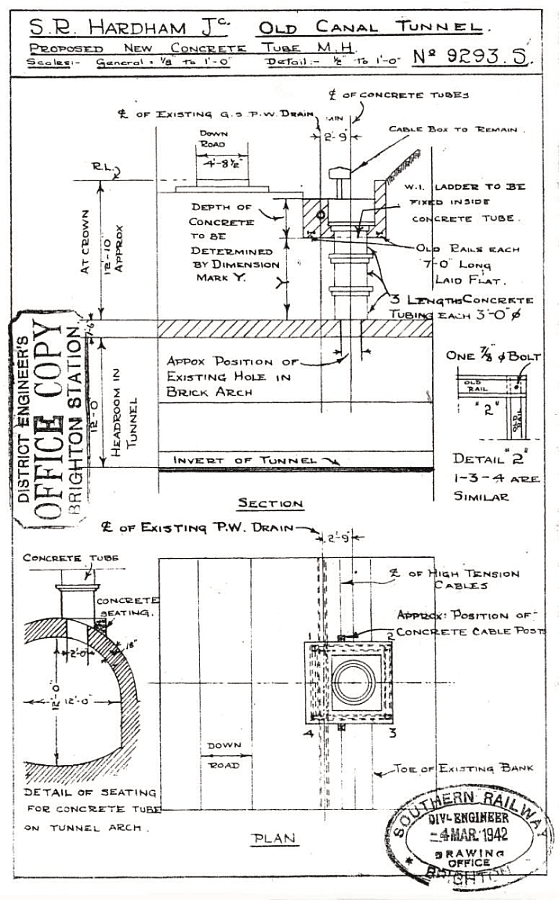 S.R. HARDHAM Jc. OLD CANAL TUNNEL.
PROPOSED NEW CONCRETE TUBE M.H.
Scales:- General = 1/8" to 1'-0" Detail :- 1/2" to 1'-0"
No 9293.S.
℄ OF CONCRETE TUBES
℄ OF EXISTING G.S P.W. DRAIN
MIN
2'-9"
CABLE BOX TO REMAIN.
DOWN
ROAD
4'-8½"
R.L.
W.I. LADDER TO BE
FIXED INSIDE
CONCRETE TUBE.
DEPTH OF
CONCRETE
TO BE
DETERMINED
BY DIMENSION
MARK Y.
Y
AT CROWN
12-10
APPROX
OLD RAILS EACH
7'-0" LONG
LAID FLAT.
3 LENGTHS CONCRETE
TUBING EACH 3'-0" φ
1'-6"
APPOX POSITION OF
EXISTING HOLE IN
BRICK ARCH
12'-0"
HEADROOM IN
TUNNEL
INVERT OF TUNNEL
SECTION
DISTRICT ENGINEER'S
OFFICE COPY
BRIGHTON STATION
ONE 7/8 φ BOLT
OLD
RAIL
"2"
OLD
RAIL
DETAIL "2"
1-3-4 ARE
SIMILAR
℄ OF EXISTING P.W. DRAIN
2'-9"
CONCRETE TUBE
CONCRETE
SEATING.
2'-0"
18"
12'-0"
12'-0"
DETAIL OF SEATING
FOR CONCRETE TUBE
ON TUNNEL ARCH.
℄ OF HIGH TENSION
CABLES
APPROX: POSITION OF
CONCRETE CABLE POSTS
1
2
3
4
DOWN
ROAD
TOE OF EXISTING BANK
PLAN
SOUTHERN RAILWAY
DIVL ENGINEER
-4 MAR. 1942
DRAWING
OFFICE
BRIGHTON